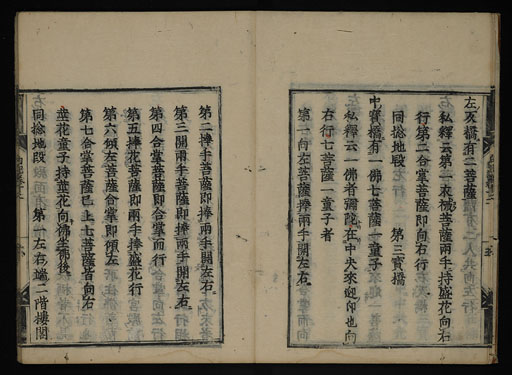 左右橋有二菩薩
私釋云第一衣裓菩薩兩手持盛花向右
行第二合掌菩薩即向右行
同捻地段　　第三寶橋
中寶橋有一佛七菩薩一童子
私釋云一佛者彌陀在中央來迎印也向
右行七菩薩一童子者
第一向左菩薩捧兩手開左右
第二捧手菩薩即捧兩手開左右
第三開兩手菩薩即捧兩手開左右
第四合掌菩薩即合掌而行
第五捧花菩薩即兩手捧蓮花行
第六傾左菩薩合掌即傾左
第七合掌菩薩已上七菩薩皆向右
蓮花童子持蓮花向佛坐佛後
同捻地段　　第一左右端二階樓閣